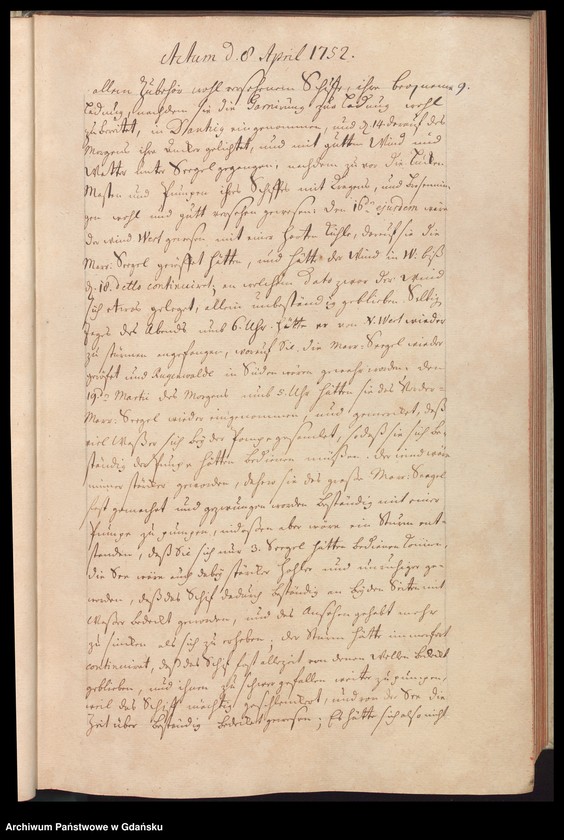 Actum d. 8 April 1752.
9.
allem Zubehör wohl versehenem Schiffe, ihre
Ladung, nachdem sie die Garnirung zur Ladung wohl
zubereitet, in Dantzig eingenommen, und d. 14 darauf des
Morgens ihre Ancker gelichtet, und mit gutten Wind und
Wetter unter Seegel gegangen, nachdem zu vor die Lucken
Masten und Pumpen ihres Schiffs mit Kragens, und
gen wohl und gutt versehen gewesen: den 16ten ejusdem wäre
der Wind West gewesen mit einer harten Kühlte, darauf sie die
Mars-Seegel gerefft hätten, und hätte der Wind in W: biß
d. 18. detto continuiret, an welchem Dato zwar der Wind
sich etwas geleget, allein unbeständig geblieben. Selbigen
Tages des Abends umb 6. Uhr hätte er von N. West wieder
zu stürmen angefangen, worauf Sie die Mars-Seegel wieder
gerefft und Rügenwalde in Süden wären gewahr worden: den
19ten Martii des Morgens umb 5. Uhr hätten sie das Vorder-
Mars-Seegel wieder eingenommen, und gemercket, daß
viel Waßer sich bey der Pompe gesamlet, sodaß sie sich be-
ständig der Pumpe hätten bedienen müßen. Der Wind wäre
immer stärcker geworden, dahero sie das große Mars-Seegel
fest gemacht und gezwungen worden beständig mit einer
Pumpe zu pumpen, indeßen aber wäre ein Sturm ent-
standen, daß Sie sich nur 3. Seegel hätten bedienen können,
die See wäre auch dabey stärcker hohler und unruhiger ge-
worden, daß das Schiff dadurch beständig an beyden Seiten mit
Waßer bedeckt geworden, und das Ansehen gehabt mehr
zu sincken als sich zu erheben; der Sturm hätte immerfort
continuiret, daß das Schiff fast allzeit von denen Wellen bedeckt
geblieben, und ihnen zu schwer gefallen weiter zu pumpen,
weil das Schiff mächtig geschlenckert, und von der See die
Zeit über beständig bedecket gewesen; Es hätte sich also nicht
Archiwum Państwowe w Gdańsku